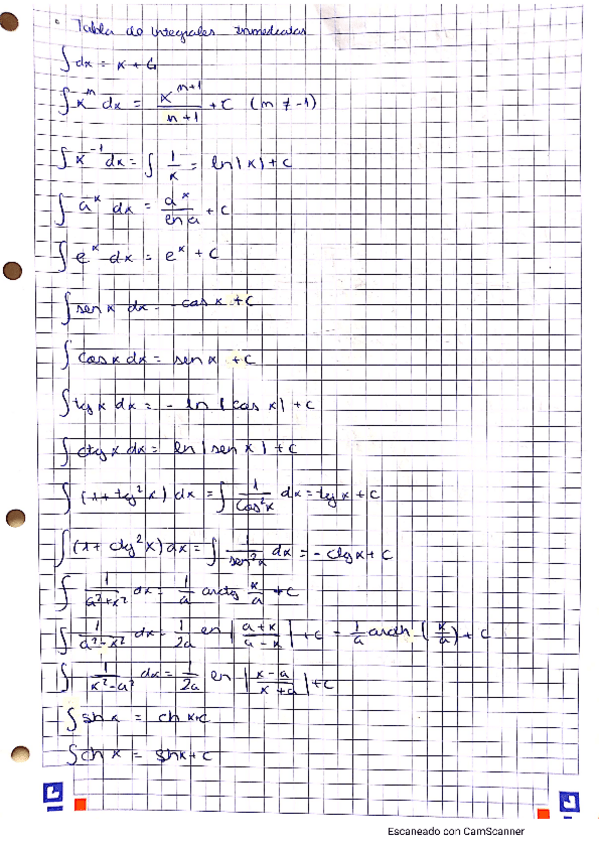 Tabla de integrales inmediatas
∫dx = x + C
∫x^n dx = x^(n+1)/(n+1) + C (n ≠ -1)
∫x^-1 dx = ∫ 1/x = ln|x| + C
∫a^x dx = a^x/ln a + C
∫e^x dx = e^x + C
∫sen x dx = -cos x + C
∫cos x dx = sen x + C
∫tg x dx = - ln |cos x| + C
∫ctg x dx = ln |sen x| + C
∫(1 + tg²x) dx = ∫ 1/cos²x dx = tg x + C
∫(1 + ctg²x) dx = ∫ 1/sen²x dx = - ctg x + C
∫ 1/(a²+x²) dx = 1/a arctg x/a + C
∫ 1/(a²-x²) dx = 1/2a ln |(a+x)/(a-x)| + C = 1/a (x/a) + C
∫ 1/(x²-a²) dx = 1/2a ln |(x-a)/(x+a)| + C
∫sh x = ch x + C
∫ch x = sh x + C
Escaneado con CamScanner